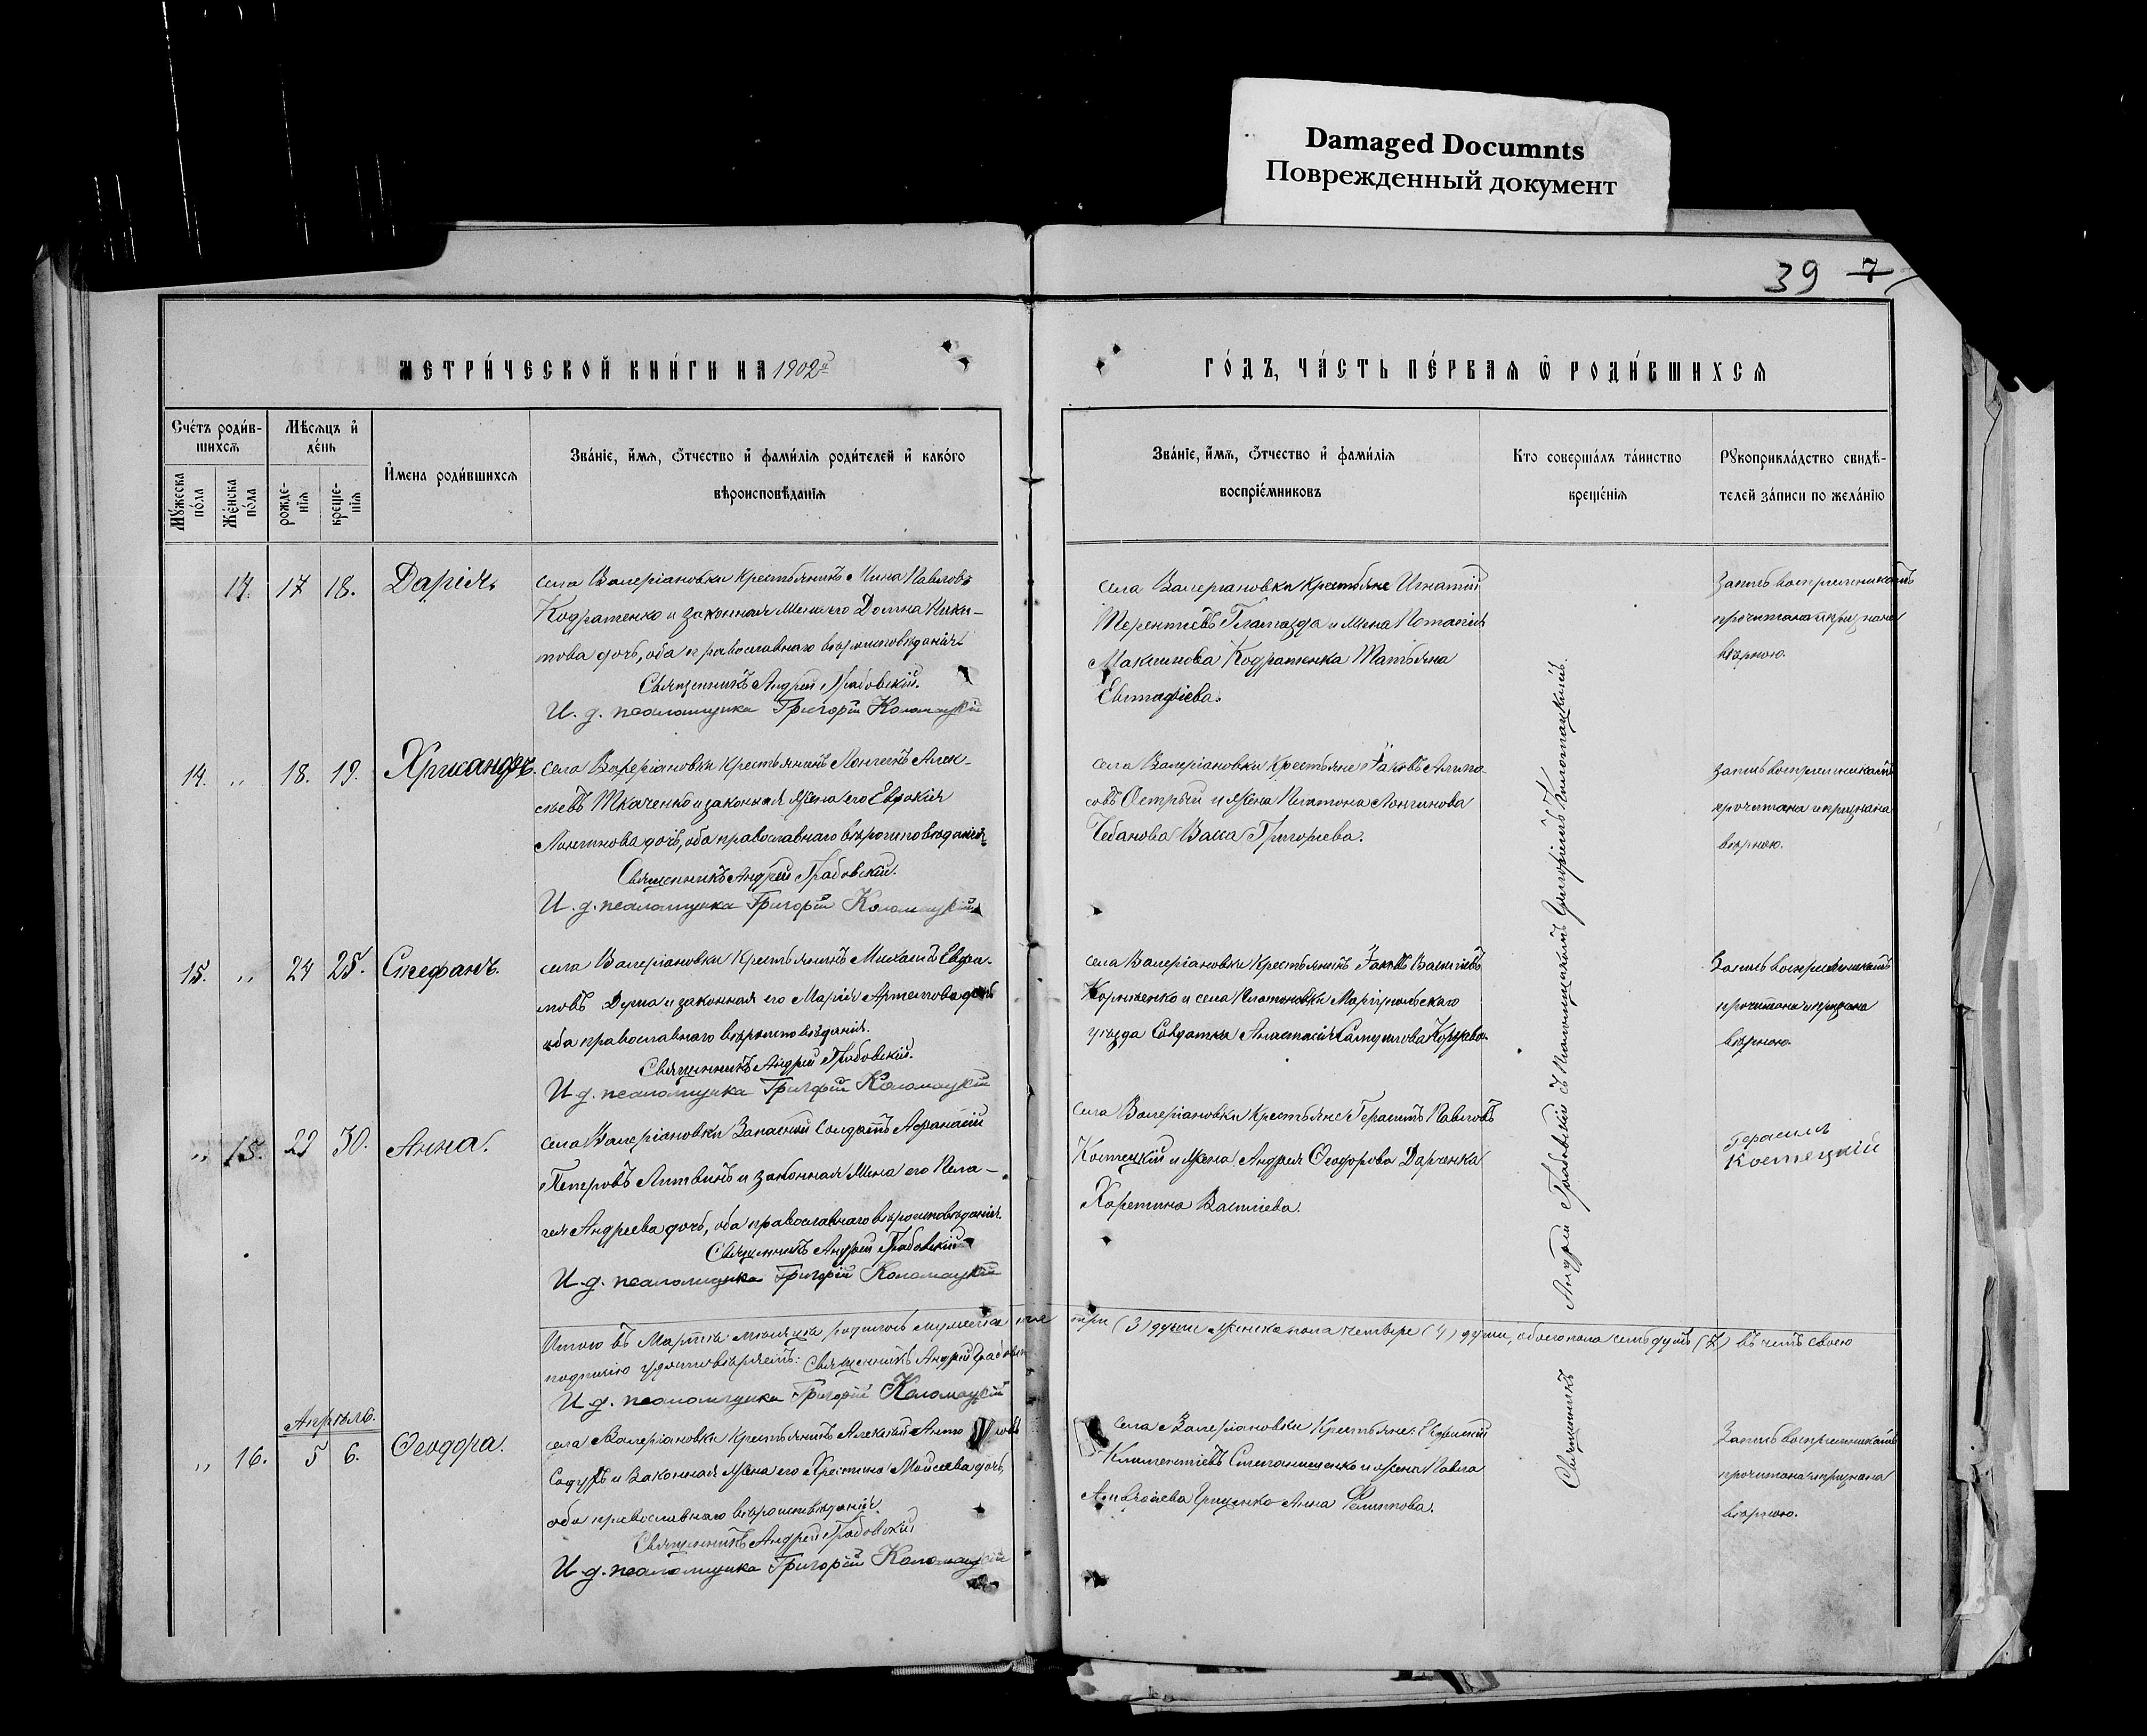 Damaged Documnts
Поврежденный документ
39 7
МЕТРИ́ЧЕСКОЙ КНИ́ГИ НА 1902й
ГО́ДЪ, ЧА́СТЬ ПЕ́РВАЯ Ѿ РОДИ́ВШИХСЯ
Сче́тъ роди́в-
шихсѧ
Мѣ́сѧцъ и҆
де́нь
Му́жеска
по́ла
Же́нска
по́ла
рожде-
нїѧ
креще-
нїѧ
И҆́мена роди́вшихсѧ
Зва́нїе, и҆́мѧ, ѻ҆́тчество и҆ фами́лїѧ роди́телей и҆ како́го
вѣроисповѣ́данїѧ
Зва́нїе, и҆́мѧ, ѻ҆́тчество и҆ фами́лїѧ
воспрїе́мниковъ
Кто соверша́лъ та́инство
креще́нїѧ
Рꙋкоприкла́дство свидѣ́-
телей за́писи по жела́нїю
14. 17 18. Дарія.
села Валеріановки крестьянинъ Мина Павловъ
Кодратенко и законная жена его Домна Ники-
това дочь, оба православнаго вѣроисповѣданія.
Священникъ Андрей Грабовскій.
И. д. псаломщика Григорій Коломацкій
села Валеріановки крестьяне Игнатій
Терентіевъ Гламазда и жена Потапія
Максимова Кодратенка Татьяна
Евстафіева.
Запись воспріемникамъ
прочитана и признана
вѣрною.
14. „ 18. 19. Хрисанфъ.
села Валеріановки крестьянинъ Лонгинъ Алек-
сѣевъ Ткаченко и законная жена его Евдокія
Лонгинова дочь, оба православнаго вѣроисповѣданія.
Священникъ Андрей Грабовскій.
И. д. псаломщика Григорій Коломацкій
села Валеріановки крестьяне Іаковъ
Острый и жена Платона Лонгинова
Чебанова Васса Григорьева.
Запись воспріемникамъ
прочитана и признана
вѣрною.
15. „ 24 25. Стефанъ.
села Валеріановки крестьянинъ Михаилъ Евдоки-
мовъ Дума и законная его Марія Артемова дочь
оба православнаго вѣроисповѣданія.
Священникъ Андрей Грабовскій.
И. д. псаломщика Григорій Коломацкій
села Валеріановки крестьянинъ Іаковъ Васильевъ
Корніенко и села Платоновки Маріупольскаго
уѣзда Солдатка Анастасія Самуилова
Запись воспріемникамъ
прочитана и признана
вѣрною.
„ 15. 29 30. Анна.
села Валеріановки Запасный Солдатъ Афанасій
Петровъ Литвинъ и законная жена его Пела-
гея Андреева дочь, оба православнаго вѣроисповѣданія.
Священникъ Андрей Грабовскій
И. д. псаломщика Григорій Коломацкій
села Валеріановки крестьяне Герасимъ Павловъ
Костецкій и жена Андрея Ѳеодорова Дарченка
Харитина Василіева.
Герасим
Костецкій
Итого въ Мартѣ мѣсяцѣ родилось мужеска пола три (3) души женска пола четыре (4) души, обоего пола семь душъ (7) въ чемъ своею
подписью удостовѣряемъ: Священникъ Андрей Грабовскій
И. д. псаломщика Григорій Коломацкій
Апрѣль.
„ 16. 5 6. Ѳеодора.
села Валеріановки крестьянинъ Алексій
и законная жена его Христина Моисеева дочь,
оба православнаго вѣроисповѣданія.
Священникъ Андрей Грабовскій
И. д. псаломщика Григорій Коломацкій
села Валеріановки крестьяне: Евдокимъ
Климентіевъ Степанищенко и жена Павла
Амвросіева Гриценко Анна Филиппова.
Запись воспріемникамъ
прочитана и признана
вѣрною.
Священникъ Андрей Грабовскій съ Псаломщикомъ Григоріемъ Коломацкимъ.